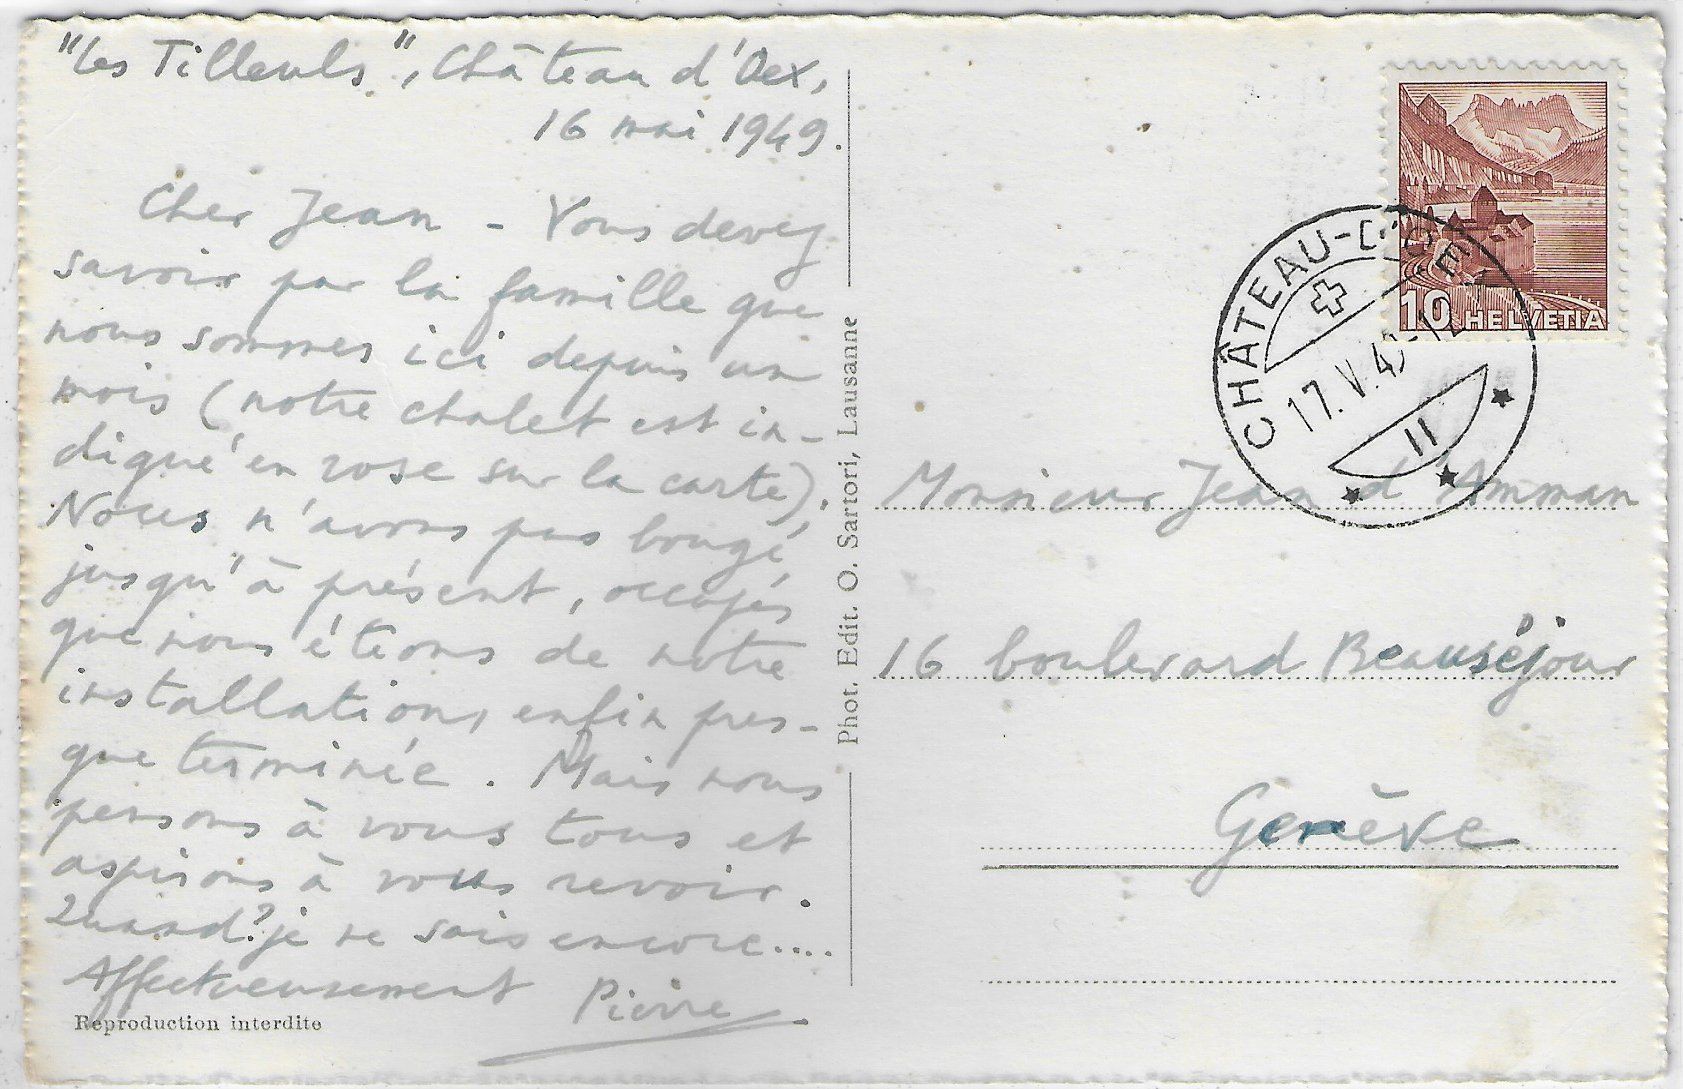 "Les Tilleuls", Château d'Oex,
16 mai 1949.
Cher Jean - Vous devez
savoir par la famille que
nous sommes ici depuis un
mois (notre chalet est in-
diqué en rose sur la carte).
Nous n'avons pas bougé,
jusqu'à présent, occupés
que nous étions de notre
installation, enfin pres-
que terminée. Mais nous
pensons à vous tous et
aspirons à vous revoir.
Quand? je ne sais encore....
Affectueusement Pierre
Reproduction interdite
Phot. Edit. O. Sartori, Lausanne
10 HELVETIA
CHÂTEAU-D'OEX
17.V.49-12
II
Monsieur Jean d'Amman
16 boulevard Beauséjour
Genève